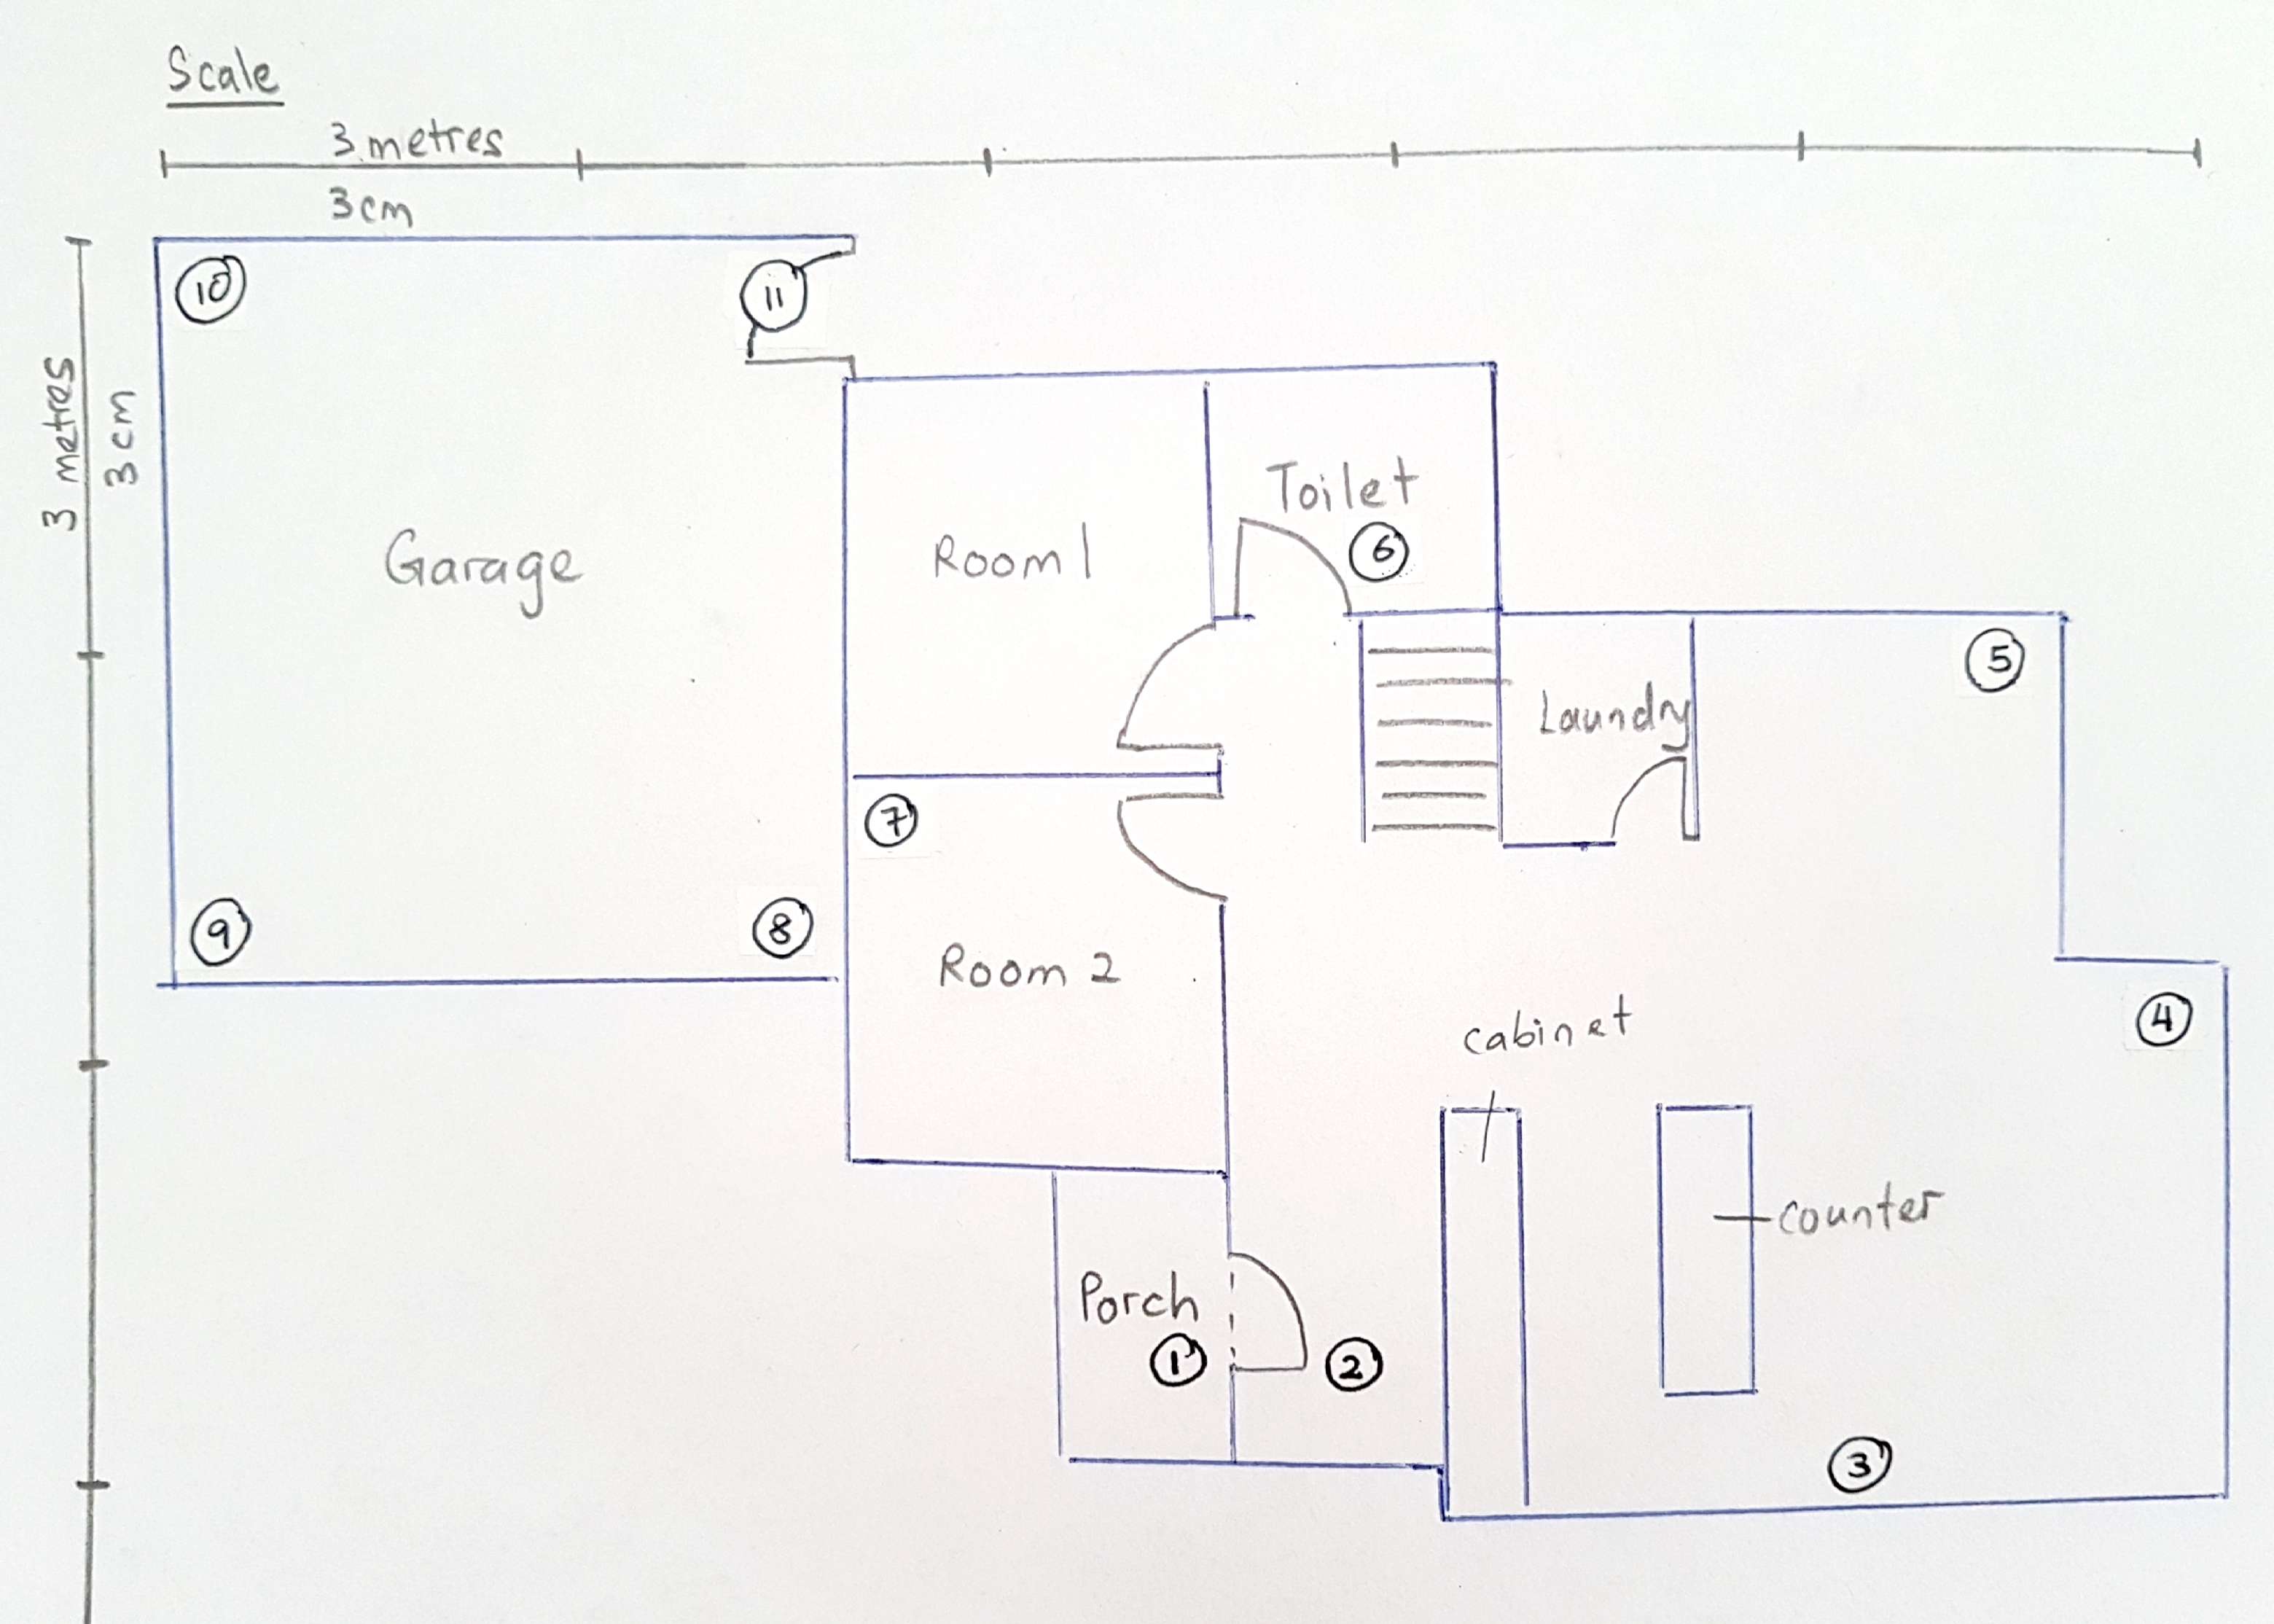 Scale
3 metres
3 cm
3 metres
3 cm
10
11
Garage
Room 1
Toilet
6
5
Laundry
7
9
8
Room 2
4
cabinet
counter
Porch
1
2
3